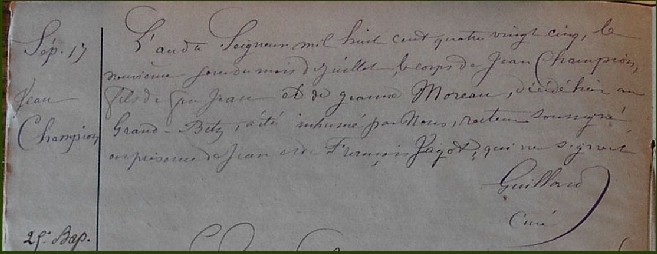 Sép. 17
Jean
Champion
L'an du Seigneur mil huit cent quatre vingt cinq, le
neuvième jour du mois de Juillet le corps de Jean Champion,
fils de feu Jean et de Jeanne Moreau, décédé hier au
Grand-Betz, a été inhumé par Nous, recteur soussigné
en présence de Jean et de François Jagot, qui ne signent
Guillard
Curé
25e Bap.